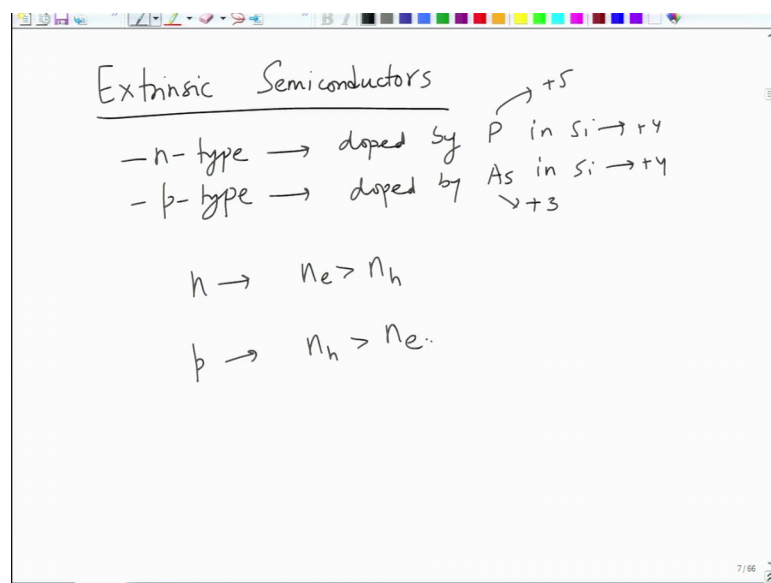 Extrinsic Semiconductors
+5
- n-type → doped by P in Si → +4
- p-type → doped by As in Si → +4
↘ +3
n → ne > nh
p → nh > ne..
7/66